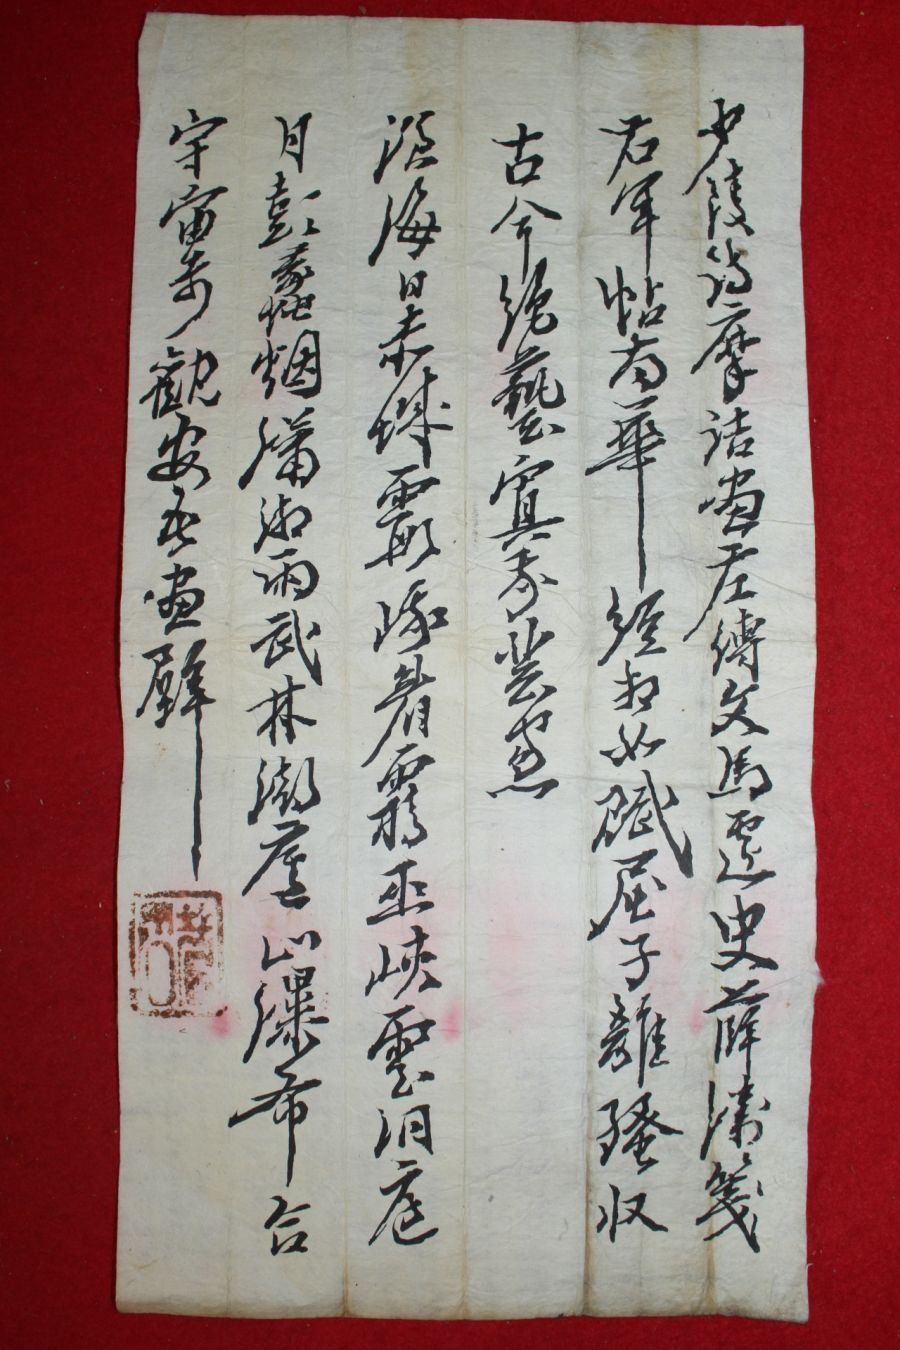 少陵詩摩詰畫左傳文馬遷史薛濤箋
右軍帖南華經相如賦屈子離騷收
古今絕藝寘我芸窓
滄海日赤城霞峨眉巫峽雲洞庭
月彭蠡烟瀟湘雨武林潮廬山瀑布合
宇宙奇觀安吾畫壁